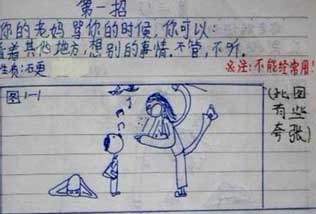 第一招
你的老妈骂你的时候,你可以:
看着其他地方,想别的事情,不管,不听。
性质:石更
备注:不能经常用!
图1-1
(此图
有些
夸张)